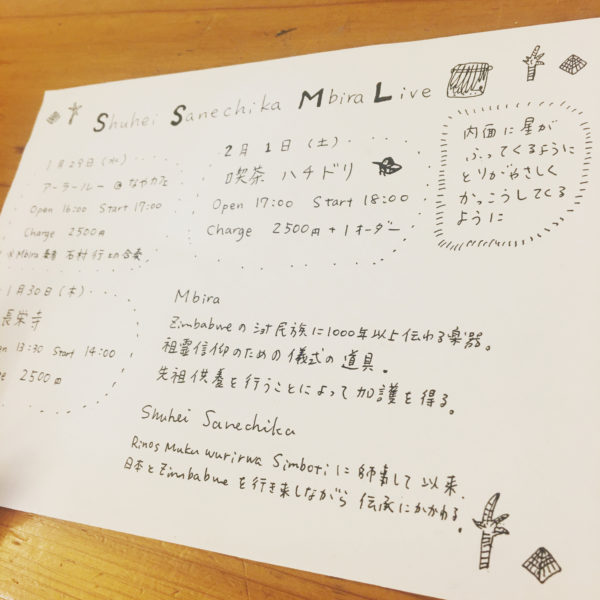 Shuhei Sanechika Mbira Live
1月29日(水)
アーラールー @ なやカフェ
Open 16:00 Start 17:00
Charge 2500円
Mbira奏者 石村 行との合奏
1月30日(木)
長栄寺
en 13:30 Start 14:00
ge 2500円
2月1日(土)
喫茶 ハチドリ
Open 17:00 Start 18:00
Charge 2500円+1オーダー
内面に星が
ふってくるように
とりがやさしく
かっこうしてくる
ように
Mbira
Zimbabweのショナ民族に1000年以上伝わる楽器。
祖霊信仰のための儀式の道具。
先祖供養を行うことによって加護を得る。
Shuhei Sanechika
Rinos Mukuwurirwa Simbotiに師事して以来、
日本とZimbabweを行き来しながら伝承にかかわる。